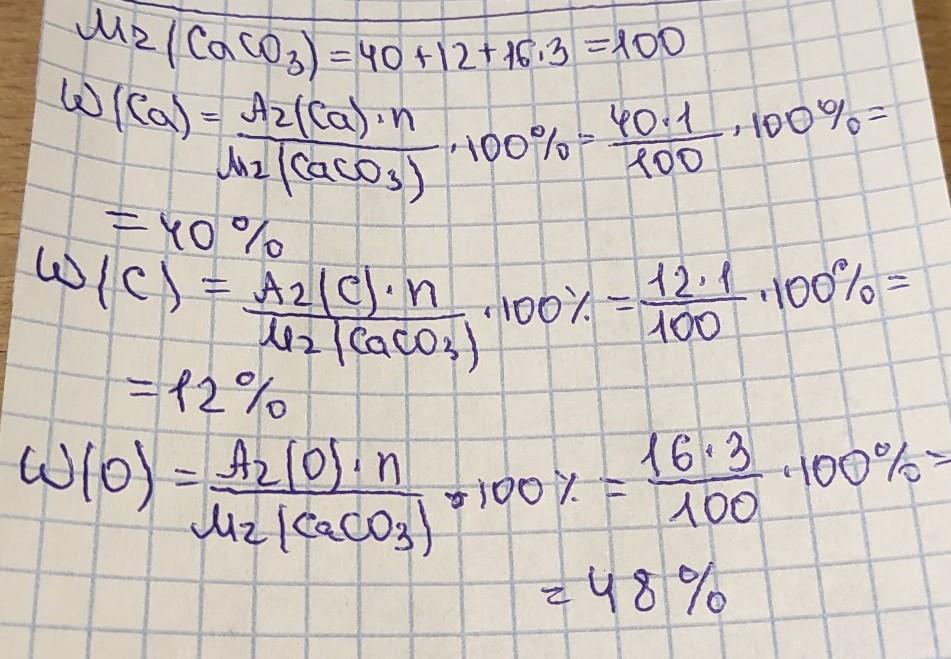 Mr(CaCO₃) = 40+12+16·3 = 100
W(Ca) = Ar(Ca)·n / Mr(CaCO₃) ·100% = 40·1 / 100 ·100% =
= 40%
W(C) = Ar(C)·n / Mr(CaCO₃) ·100% = 12·1 / 100 ·100% =
= 12%
W(O) = Ar(O)·n / Mr(CaCO₃) ·100% = 16·3 / 100 ·100% =
= 48%